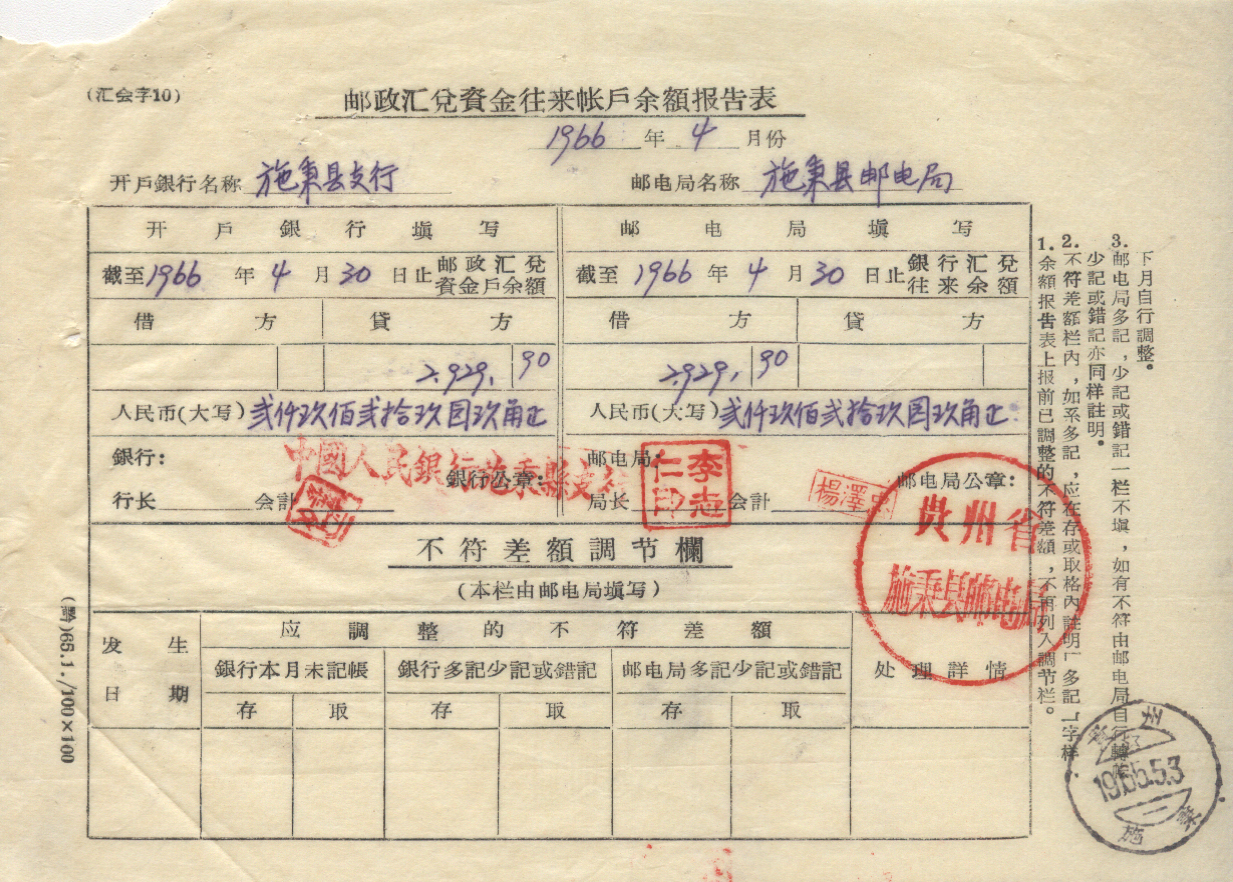 (汇会字10)
邮政汇兌資金往来帐戶余額报告表
1966年4月份
开戶銀行名称 施秉县支行
邮电局名称 施秉县邮电局
开戶銀行塡写
邮电局塡写
截至1966年4月30日止邮政汇兌資金戶余額
截至1966年4月30日止銀行汇兌往来余額
借方 貸方
借方 貸方
2,929.90
2,929.90
人民币(大写)弍仟玖佰弍拾玖囩玖角正
人民币(大写)弍仟玖佰弍拾玖囩玖角正
銀行:
中國人民銀行施秉縣支行
銀行公章:
行长 会計
邮电局:
李志仁印
邮电局公章:
局长 会計
楊澤
貴州省
施秉县邮电局
不符差額調节欄
(本栏由邮电局塡写)
发生日期
应調整的不符差額
处理詳情
銀行本月未記帳
銀行多記少記或錯記
邮电局多記少記或錯記
存 取 存 取 存 取
1.余額报告表上报前已調整的不符差額,不再列入調节栏。
2.不符差額栏內,如系多記,应在存或取格內註明「多記」字样,
少記或錯記亦同样註明。
3.邮电局多記,少記或錯記一栏不塡,如有不符由邮电局自行轉
下月自行調整。
(黔)65.1./100×100
1966.5.3
施秉